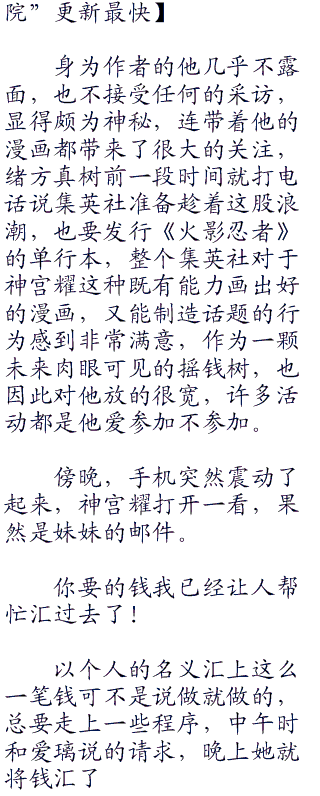 院”更新最快】
身为作者的他几乎不露
面，也不接受任何的采访，
显得颇为神秘，连带着他的
漫画都带来了很大的关注，
绪方真树前一段时间就打电
话说集英社准备趁着这股浪
潮，也要发行《火影忍者》
的单行本，整个集英社对于
神宫耀这种既有能力画出好
的漫画，又能制造话题的行
为感到非常满意，作为一颗
未来肉眼可见的摇钱树，也
因此对他放的很宽，许多活
动都是他爱参加不参加。
傍晚，手机突然震动了
起来，神宫耀打开一看，果
然是妹妹的邮件。
你要的钱我已经让人帮
忙汇过去了！
以个人的名义汇上这么
一笔钱可不是说做就做的，
总要走上一些程序，中午时
和爱璃说的请求，晚上她就
将钱汇了